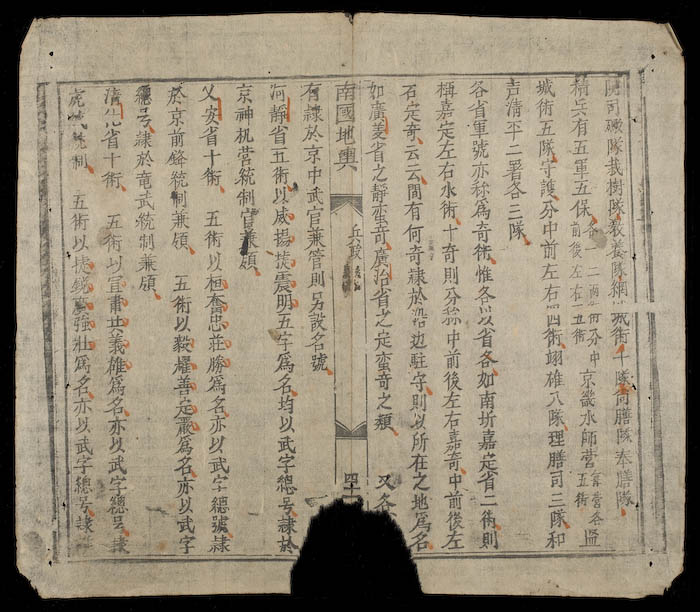 司礟隊栽樹隊教養隊網 城術十隊尚膳隊奉膳隊
精兵有五軍五保各二面術分中前後左右五術京畿水師營三營各五術
城術五隊守護分中前左右四術翊雄八隊理膳司三隊和
声清平二署各三隊
各省軍號亦称為奇術惟各以省各如南圻嘉定省二術則
稱嘉定左右水術十奇則分称中前後左右嘉奇中前後左
右定奇云云間有何奇隷於沿边駐守則以所在之地爲名
如廣義省之靜蛮奇廣治省之定蛮奇之類 又各
南國地輿 兵政 四十
有隷於京中武官兼管則另設名號
河靜省五術以威揚 震明五字爲名均以武字總号隷於
京神机营統制官兼領
乂安省十術 五術以桓奮忠莊勝爲名亦以武字總號隷
於京前鋒統制兼領 五術以毅耀善定嚴爲名亦以武字
總号隷於竜武統制兼領
清化省十術 五術以宣肅 義雄爲名亦以武字總号隷
虎威統制 五術以捷鋭 強壯爲名亦以武字總号隷